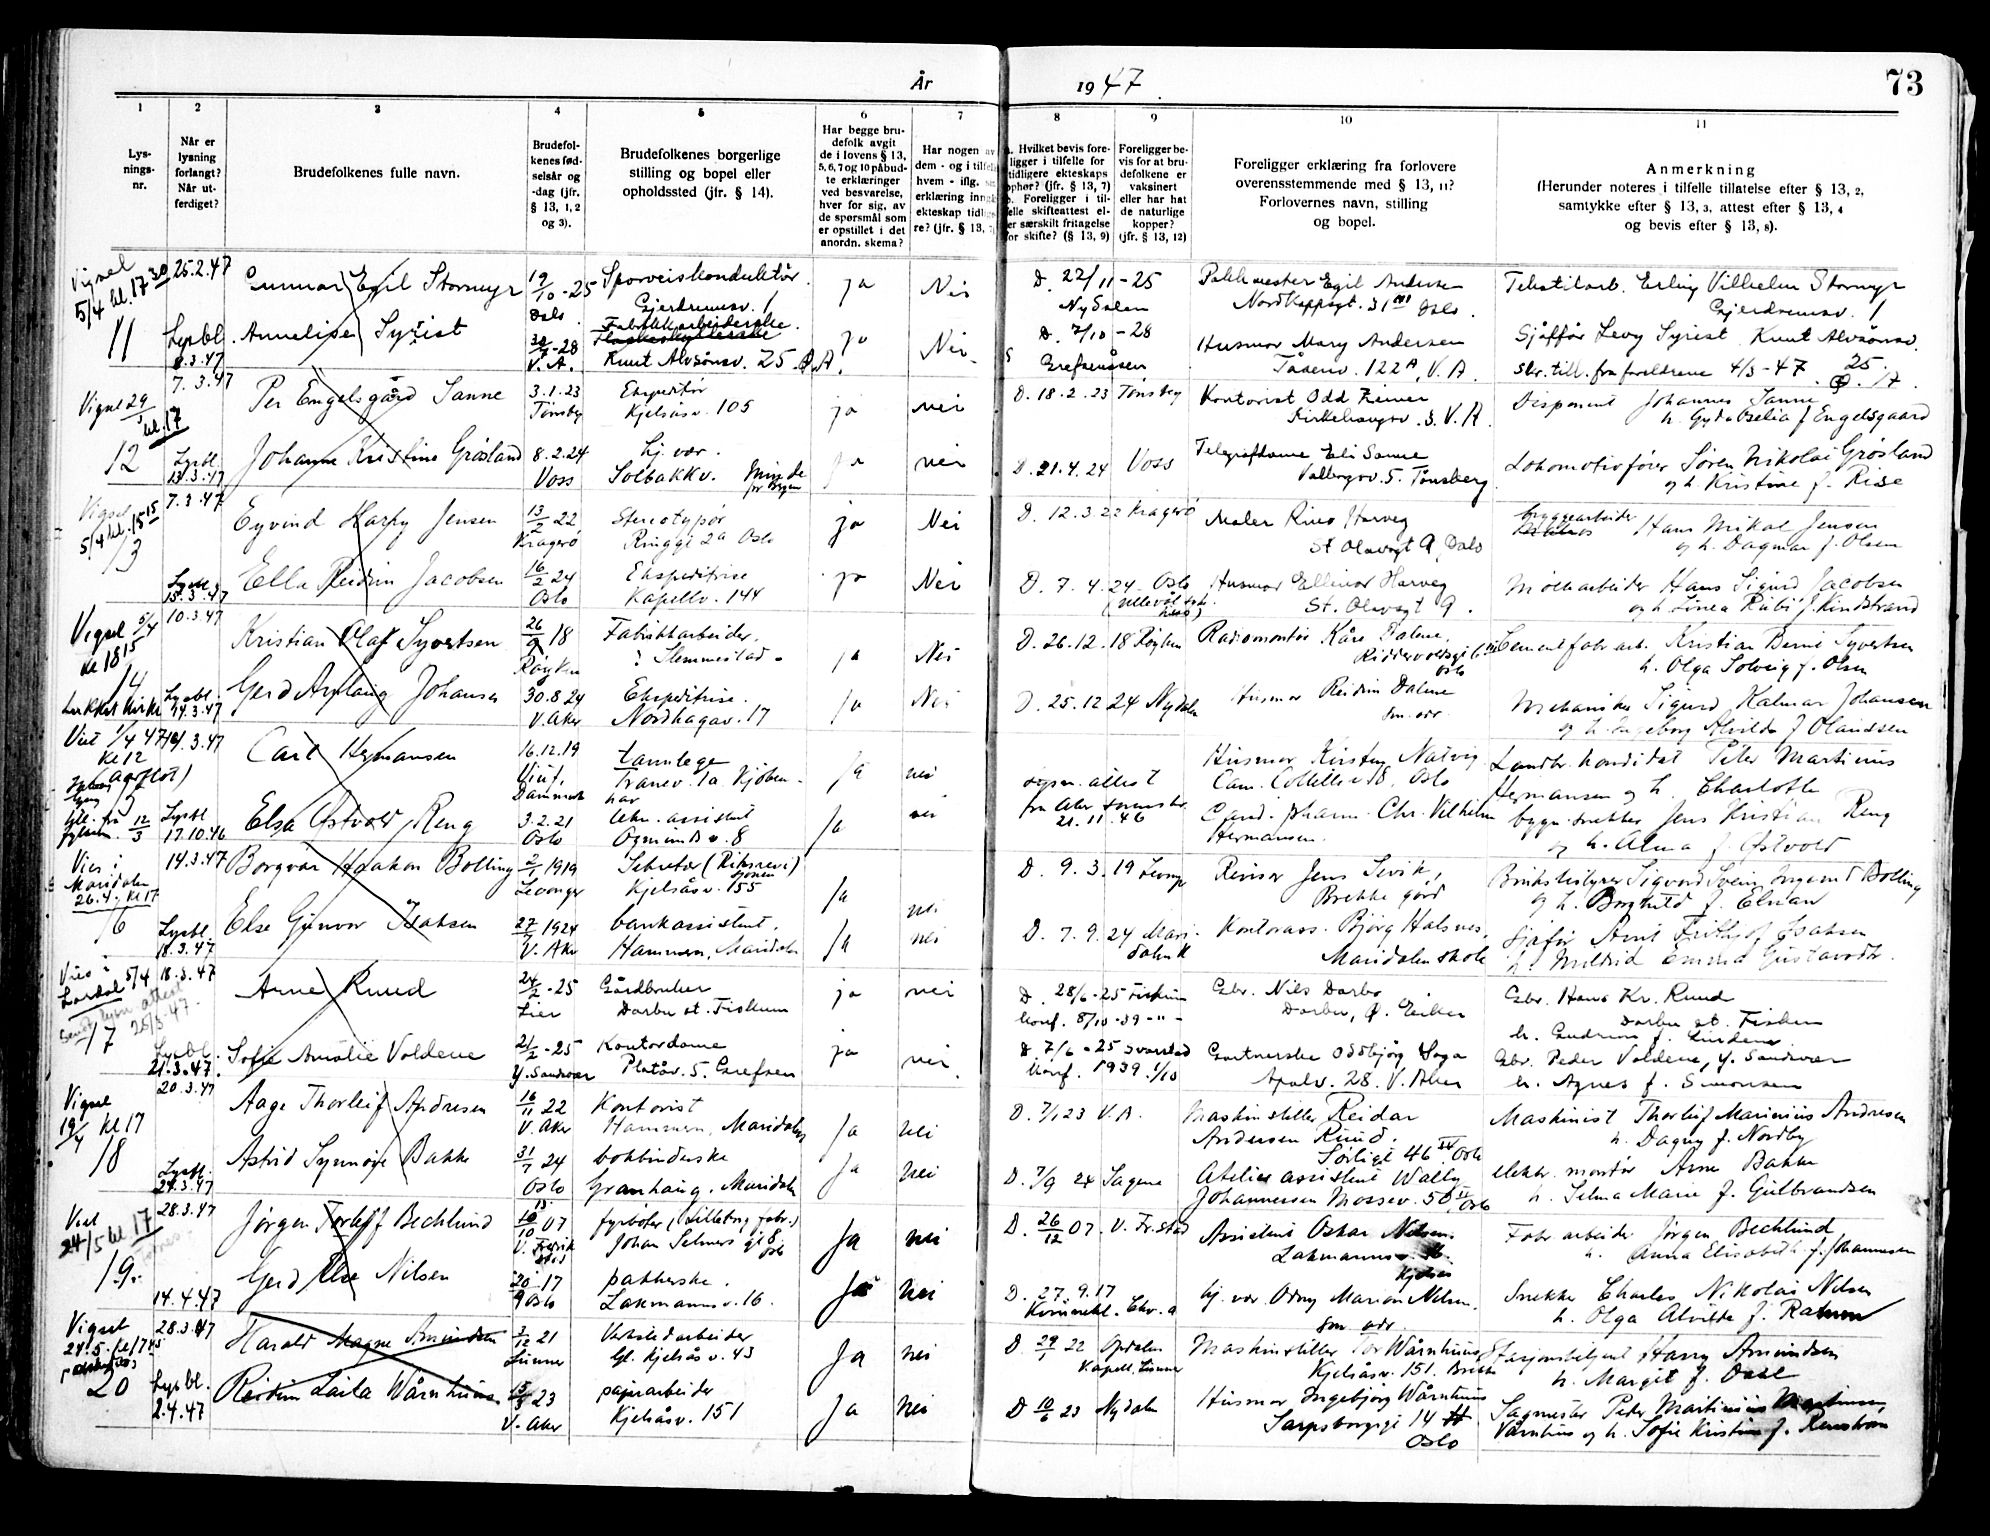 År 1947.
73
1
2
3
4
5
6
7
8
9
10
11
Lys-
nings-
nr.
Når er
lysning
forlangt?
Når ut-
ferdiget?
Brudefolkenes fulle navn.
Brudefol-
kenes fød-
selsår og
-dag (jfr.
§ 13, 1, 2
og 3).
Brudefolkenes borgerlige
stilling og bopel eller
opholdssted (jfr. § 14).
Har begge bru-
defolk avgit
de i lovens § 13,
5, 6, 7 og 10 påbud-
te erklæringer
ved besvarelse,
hver for sig, av
de spørsmål som
er opstillet i det
anordn. skema?
Har nogen av
dem - og i tilfelle
hvem - iflg.
erklæring inn
ekteskap tidlig
re? (jfr. § 13,
Hvilket bevis fore-
ligger i tilfelle for
tidligere ekteskaps
ophør? (jfr. § 13, 7)
Foreligger i til-
elle skifteattest el-
er særskilt fritagelse
for skifte? (§ 13, 9)
Foreligger be-
vis for at bru-
defolkene er
vaksinert
eller har hat
de naturlige
kopper?
(jfr. § 13, 12)
Foreligger erklæring fra forlovere
overensstemmende med § 13, 11?
Forlovernes navn, stilling
og bopel.
Anmerkning
(Herunder noteres i tilfelle tillatelse efter § 13, 2,
samtykke efter § 13, 3, attest efter § 13, 4
og bevis efter § 13, 8).
Vigsel
5/4 kl. 17 30
11
25.2.47
Lysbl.
8.3.47
Gunnar Egil Stormyr
19/10-25
Oslo
Sporveiskonduktør
Gjerdrumsv. 1
ja
Nei
D. 22/11-25
Nydalen
Egil Andersen
Nordkappgt. 31 Oslo.
Tekstilarb. Erling Vilhelm Stormyr
Gjerdrumsv. 1
Annelise Syrist
-28
V. A.
Fabrikkarbeiderske
Knut Alvsønsv. 25 Ø.A.
ja
Nei
D. 7/10-28
Grefsen
Husmor Mary Andersen
Tåsenv. 122A, V. A.
Sjåfør Levy Syrist Knut Alvsønsv.
25
Skr. till. fra foreldrene 4/3-47
Vigsel 29/
kl. 17
12
7.3.47
Lysbl.
13.3.47
Per Engelsgård Sanne
3.1.23
Tønsberg
Ekspeditør
Kjelsåsv. 105
ja
nei
D. 18.2.23 Tønsberg
Kontorist Odd
Kirkehaugsv. 3. V. A.
Disponent Johannes Sanne
f Engelsgaard
Johanne Kristine Grøsland
8.2.24
Voss
hj. vær.
Solbakkv. Minde
pr Bergen
ja
nei
D. 21.4.24 Voss
Telegrafdame Eli Sanne
Valbergv. 5. Tønsberg
Lokomotivfører Søren Nikolai Grøsland
og h. Kristine f. Riise
Vigsel
5/4 kl. 15 15
13
7.3.47
Lysbl.
13.3.47
Eyvind Harry Jensen
13/2 22
Kragerø
Stereotypør
Ringgt 2a Oslo
ja
Nei
D. 12.3.22 Kragerø
Maler Harveg
St Olavsgt 9, Oslo
bryggearbeider
Hans Mikal Jensen
og h. Dagmar f. Olsen
Ella Reidun Jacobsen
16/2 24
Oslo
Ekspeditrise
Kapellv. 144
ja
Nei
D. 7.4.24 Oslo
Husmor Ellinor Harveg
St. Olavsgt 9.
Hans Sigurd Jacobsen
og h. Linea Rubi f. Kindstrand
Vigsel 5/4
kl 18 15
14
10.3.47
Lysbl.
14.3.47
Kristian Olaf Syvertsen
26/9 18
Røyken
Fabrikkarbeider.
Slemmestad.
ja
Nei
D. 26.12.18 Røyken
Radiomontør Kåre Dalene.
Oslo
Sementfabr arb. Kristian Bernt Syvertsen
h. Olga Solveig f. Olsen
Gerd Aslaug Johansen
30.8.24
V. Aker
Ekspeditrise.
Nordhagav. 17
ja
Nei
D. 25.12.24 Nydalen
Husmor Reidun Dalene
sm. adr.
Mekaniker Sigurd Kalmar Johansen
og h. Ingeborg Alvilde f Olaussen
Viet 1/4 47
kl 12
12/3
10.3.47
Lysbl
17.10.46
Carl Hermansen
16.12.19
Danmark
tannlege
Tranev. 1a Kjøben-
hav
ja
nei
lysn. attest
21.11.46
Husmor Kirsten Natvig
Cam. Colletts v 18. Oslo
Landbr. kandidat Peter Martinius
Hermansen og h. Charlotte
Elsa Østvold Reng
3.2.21
Oslo
assistent
Ogmunds v. 8
ja
nei
Cand. Johann. Chr. Vilhelm
Hermansen.
bygn. snekker Jens Kristian Reng
og h. Alma f. Østvold
Vies i
Maridalen
26.4. kl 17
16
14.3.47
Lysbl.
18.3.47
Borgvar Haakon Bolling
1919
Levanger
Sekretær (Riksrevi-
sjonen)
Kjelsåsv. 155
ja
nei
D. 9.3.19
Revisor Jens Sevik,
Brekke gård
Sigvard Svein Bolling
og h. Borghild f.
Else Gunvor Isaksen
27/7 1924
V. Aker
bankassistent,
Hammern, Maridalen
ja
nei
D. 7.9.24 Mari-
dalen K
Kontorass. Bjørg Halsnes,
Maridalen skole
Sjåfør Arnt Frithjof Isaksen
h. Mildrid Emma Gustavsdtr.
Vies i
Lardal 5/4
Sendt lysn attest
25/3-47.
17
18.3.47
Lysbl.
21.3.47.
Arne Ruud
24/2-25
Lier
Gårdbruker
Darbu st. Fiskum
ja
nei
D. 28/6-25 Fiskum
Konf. 8/10-39 -"-
Gbr. Nils Darbo
Darbu, Ø. Eiker
Gbr. Hans Kr. Ruud
Darbu st. Fiskum
h. Gudrun f. Lindem
Sofie Amalie Voldene
21/2-25
Y. Sandsvær
Kontordame
Platåv. 5. Grefsen
ja
nei
D. 7/6-25 Svarstad
Konf. 1939. 1/10
Gartnerske Oddbjørg Haga
Apalv. 28. V. Aker
Gbr. Peder Voldene, Y. Sandsvær
h. Agnes f. Simonsen
Vigsel
19/4 kl 17
18
20.3.47
Lysbl.
24.3.47
Aage Thorleif Andresen
16/11 22
V. Aker
Kontorist
Hammern, Maridalen
ja
nei
D. 7/1 23 V. A.
Maskinstiller Reidar
Andersen Ruud.
Sørligt 46 Oslo
Maskinist Thorleif Marinius Andresen
h. Dagny f. Nordby
Astrid Synnøve Bakke
31/7 24
Oslo
bokbinderske
Granhaug, Maridalen
ja
nei
D. 7/9 24 Sagene
Atelier assistent Wally
Johannessen Mossev. 50 Oslo
elektr. montør Arne Bakke
h. Selma Marie f. Gulbrandsen
Viet
24/5 kl 17
19.
28.3.47
14.4.47
Jørgen Torleif Bechlund
10/10 07
V. Fredrik
stad
fyrbøter (Lilleborg fabr.)
Johan Selmers gt 8
Oslo
ja
nei
D. 26/12 07. V. Fr. stad
Assistent Oskar Nilsen.
Lakmanns
Kjelsås
Fabr. arbeider Jørgen Bechlund
h. Anna Elisabeth f. Johannesen
Gerd Else Nilsen
20/9 17
Oslo
pakkerske.
Lakmanns v. 16.
ja
nei
D. 27.9.17
hj. vær. Odny Marion Nilsen.
sm. adr.
Snekker Charles Nikolai Nilsen
h. Olga Alvilde f.
Vigsel
24.5. kl 17 45
20
28.3.47
Lysbl.
2.4.47
Harald Magne Amundsen
3/12 21
Lunner
Verkstedarbeider
Gl. Kjelsås v. 43
ja
nei
D 29/1 22 Opdalen
Kapell, Lunner
Maskinstiller Tor Wårnhuus
Kjelsåsv. 151. Brekke
Stasjonsbetjent Harry Amundsen
h. Margit f.
Reidun Laila Wårnhuus
23
V. Aker
papirarbeider
Kjelsåsv. 151
ja
nei
D 10/6 23 Nydalen
Husmor Ingebjørg Wårnhuus
Sarpsborggt 14
Oslo
Sagmester Peder Martinius
Vårnhus og h. Sofie Kristine f. Renstrøm